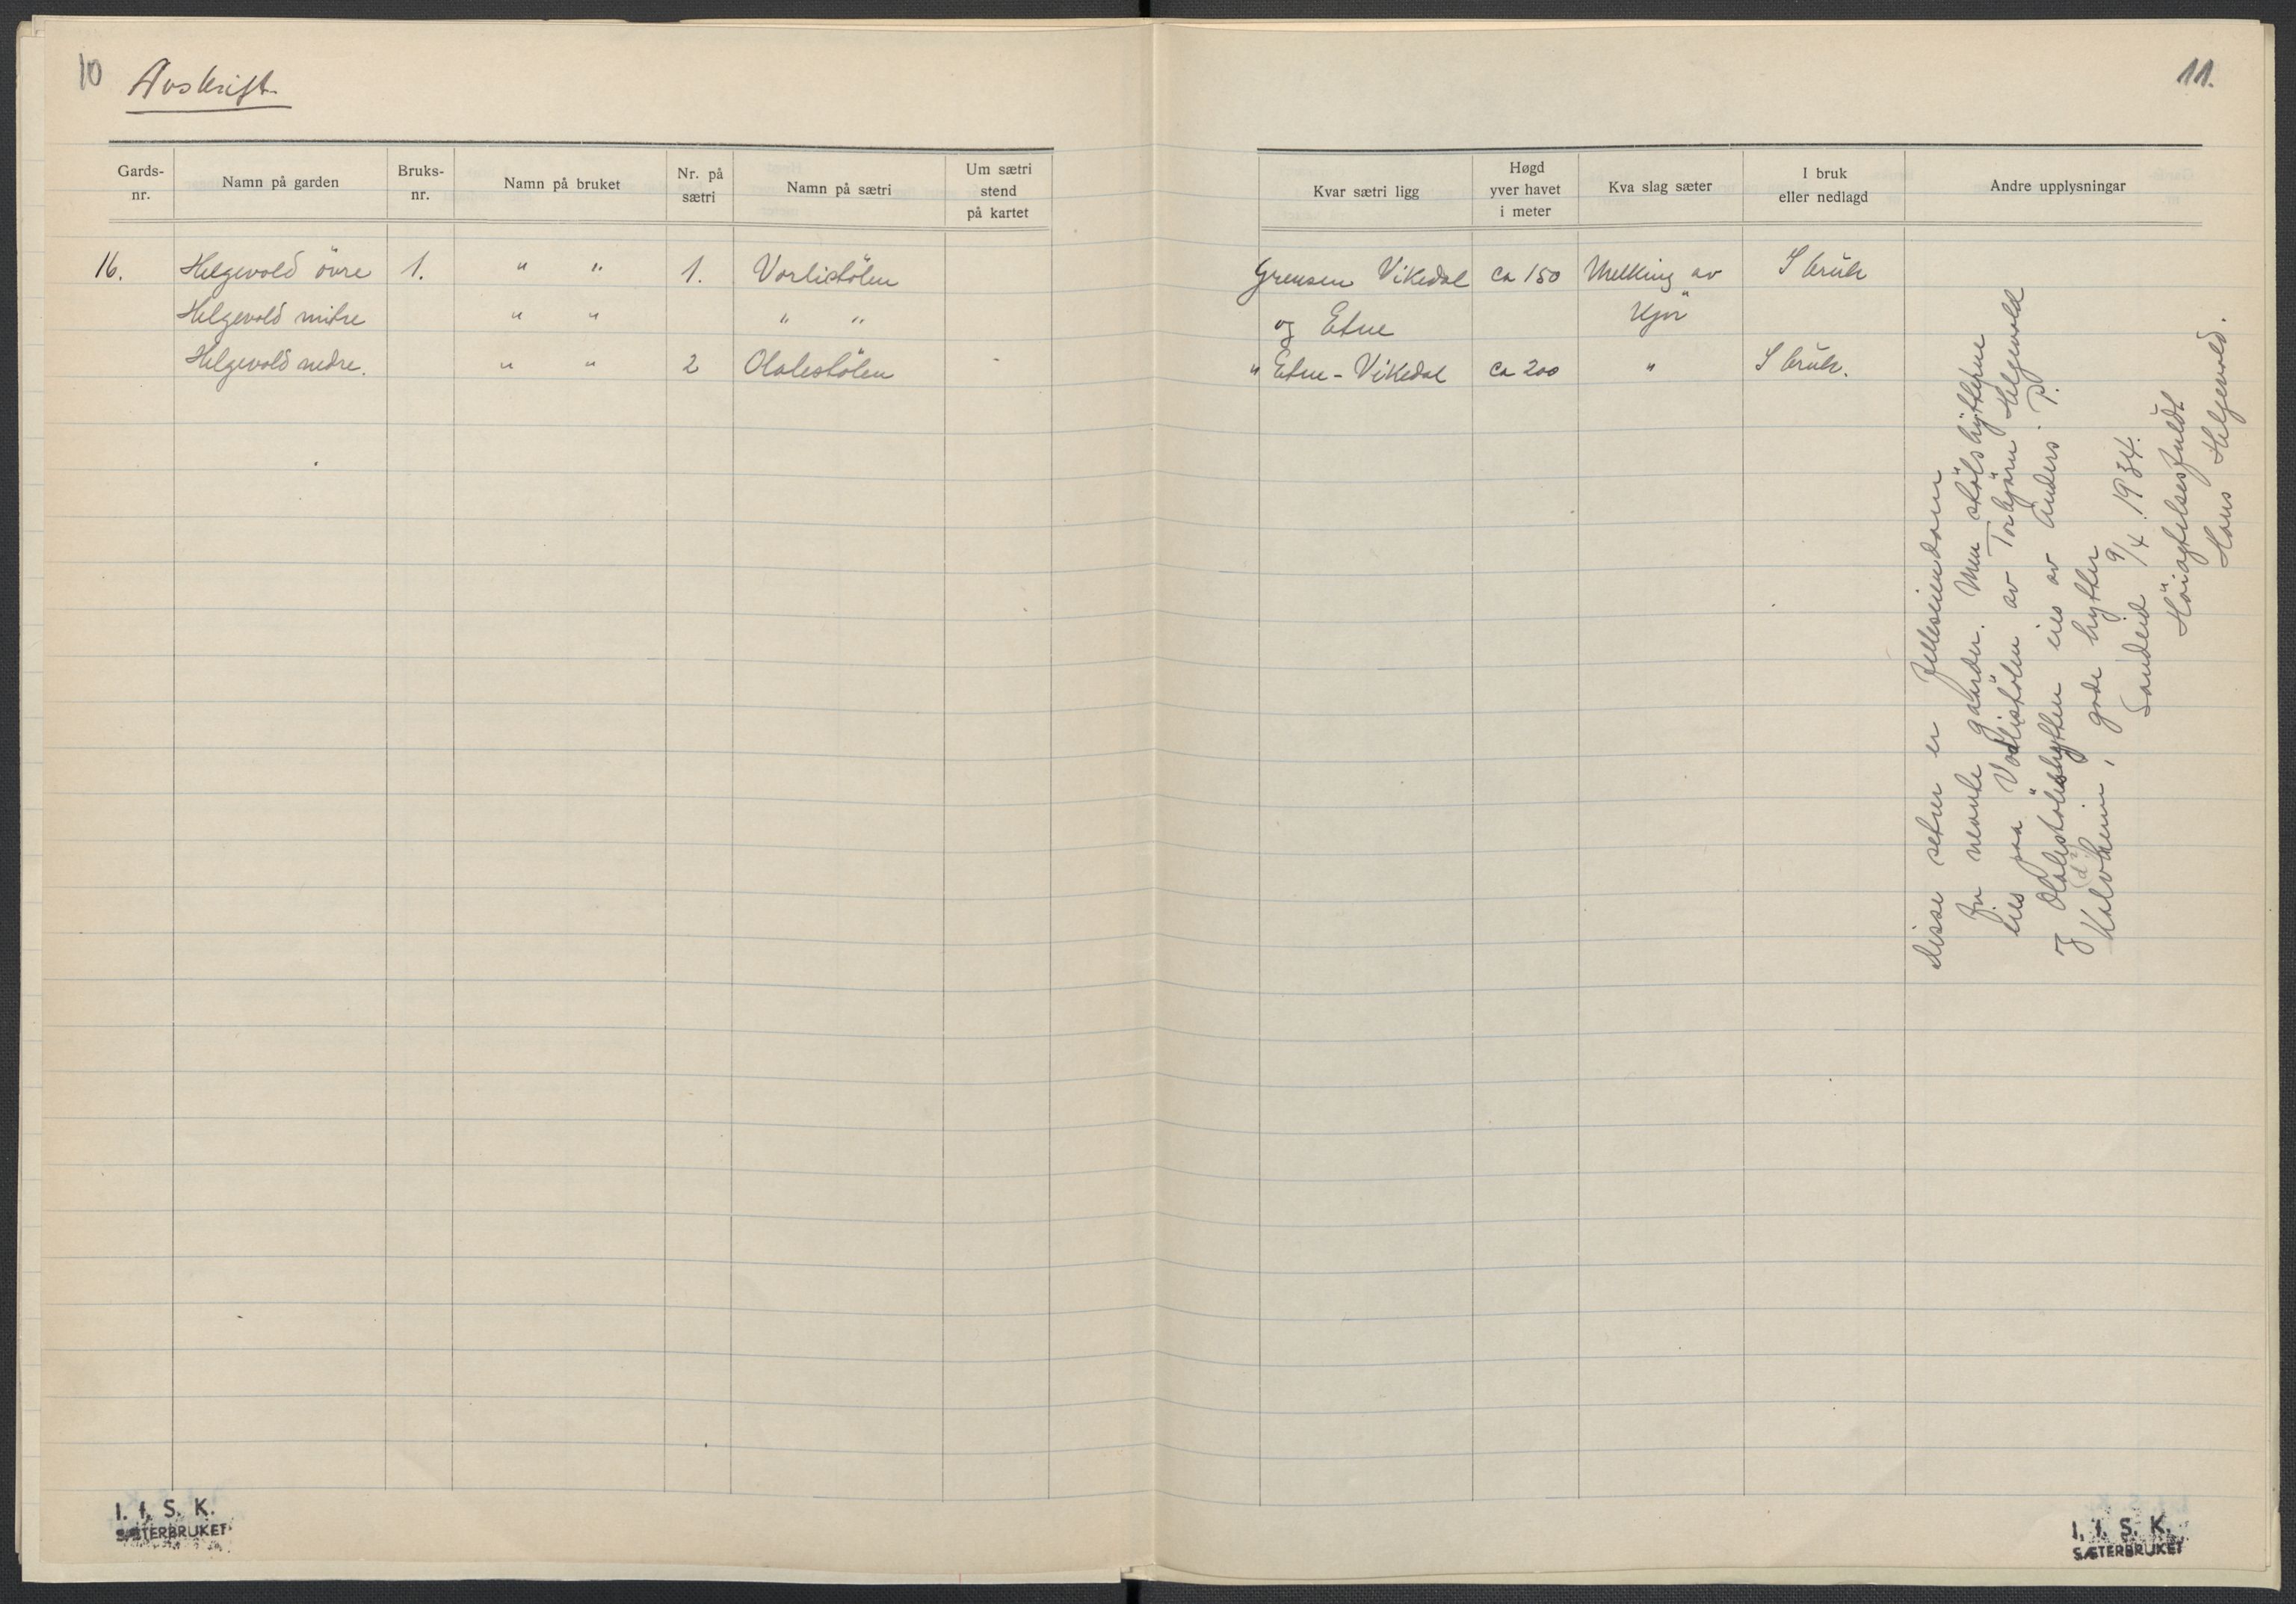 10 Avskrift
Gards-nr. Namn på garden Bruks-nr. Namn på bruket Nr. på sætri Namn på sætri Um sætri stend på kartet
16. Helgevold övre 1. " " 1. Vorlistölen
Helgevold mitre " " " "
Helgevold nedre. " " 2 Olalestölen
I. f. S. K.
SÆTERBRUKET
11.
Kvar sætri ligg Høgd yver havet i meter Kva slag sæter I bruk eller nedlagd Andre upplysningar
Grensen Vikedal ca 150 Melking av I bruk
og Etne Kjör
" Etne - Vikedal ca 200 " I bruk.
disse setrer er felleseiendom
for nevnte gaarder. Men stölshyttene
eies paa Vorlistölen av Torbjörn Helgevold
og Olalestölshytten eies av Anders P.
Kalvheim, gode hytter
Sandeid 9/4 1934.
Höiagtelsesfuldt
Hans Helgevold.
I. f. S. K.
SÆTERBRUKET